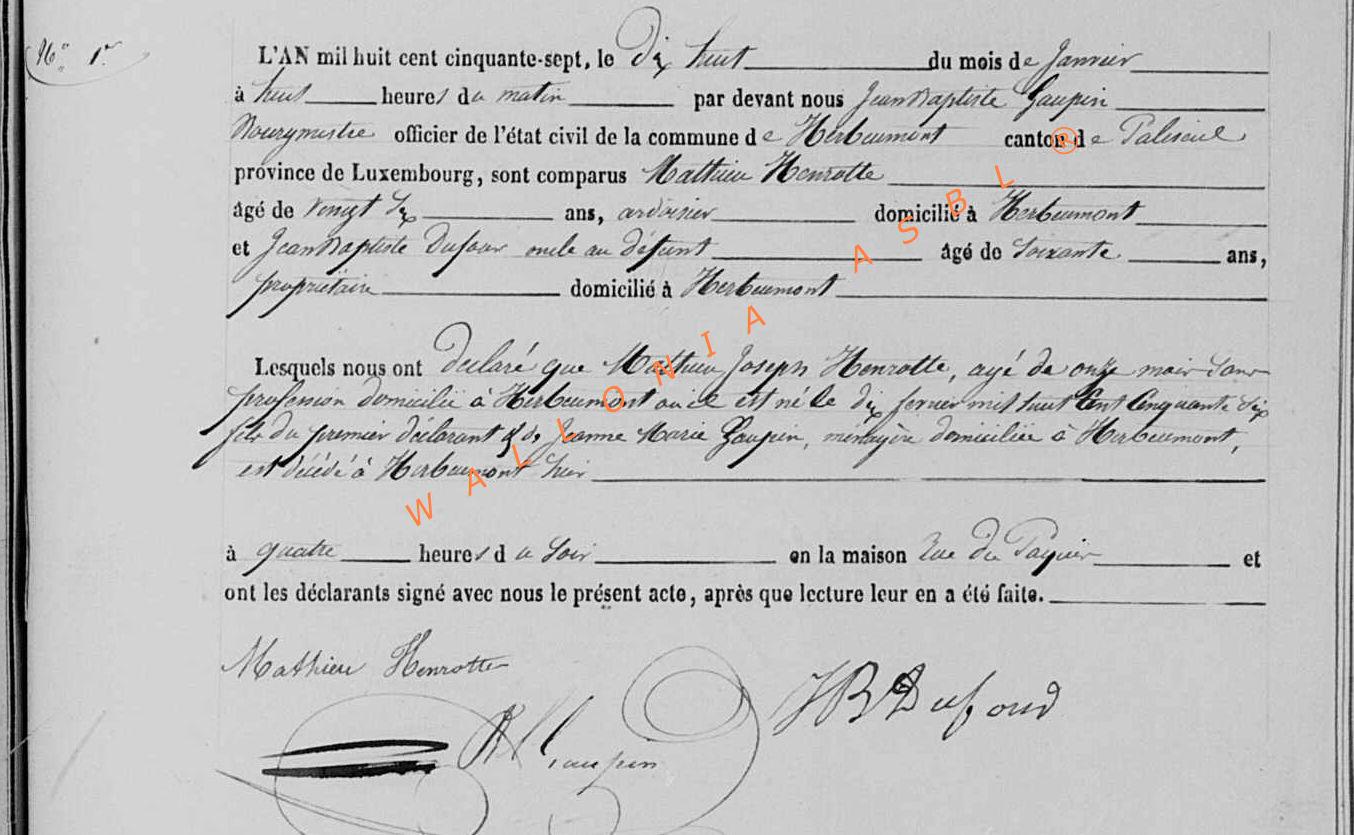 N° 1er
L'AN mil huit cent cinquante-sept, le Dix huit du mois de Janvier
à huit heures du matin par devant nous Jean Baptiste Gaupin
Bourgmestre officier de l'état civil de la commune de Herbeumont canton de Paliseul
province de Luxembourg, sont comparus Mathieu Henrotte
âgé de vingt Six ans, ardoisier domicilié à Herbeumont
et Jean Baptiste Dufour oncle au défunt âgé de Soixante ans,
propriétaire domicilié à Herbeumont
Lesquels nous ont declaré que Mathieu Joseph Henrotte, agé de onze mois Sans
profession domicilié à Herbeumont où il est né le dix fevrier mil huit Cent Cinquante Six
fils du premier déclarant & de Jeanne Marie Gaupin, menagère domiciliée à Herbeumont,
est décédé à Herbeumont hier
à quatre heures du Soir en la maison Rue du Paquier et
ont les déclarants signé avec nous le présent acte, après que lecture leur en a été faite.
Mathieu Henrotte
JB Dufour
Gaupin
WALLONIA ASBL ®